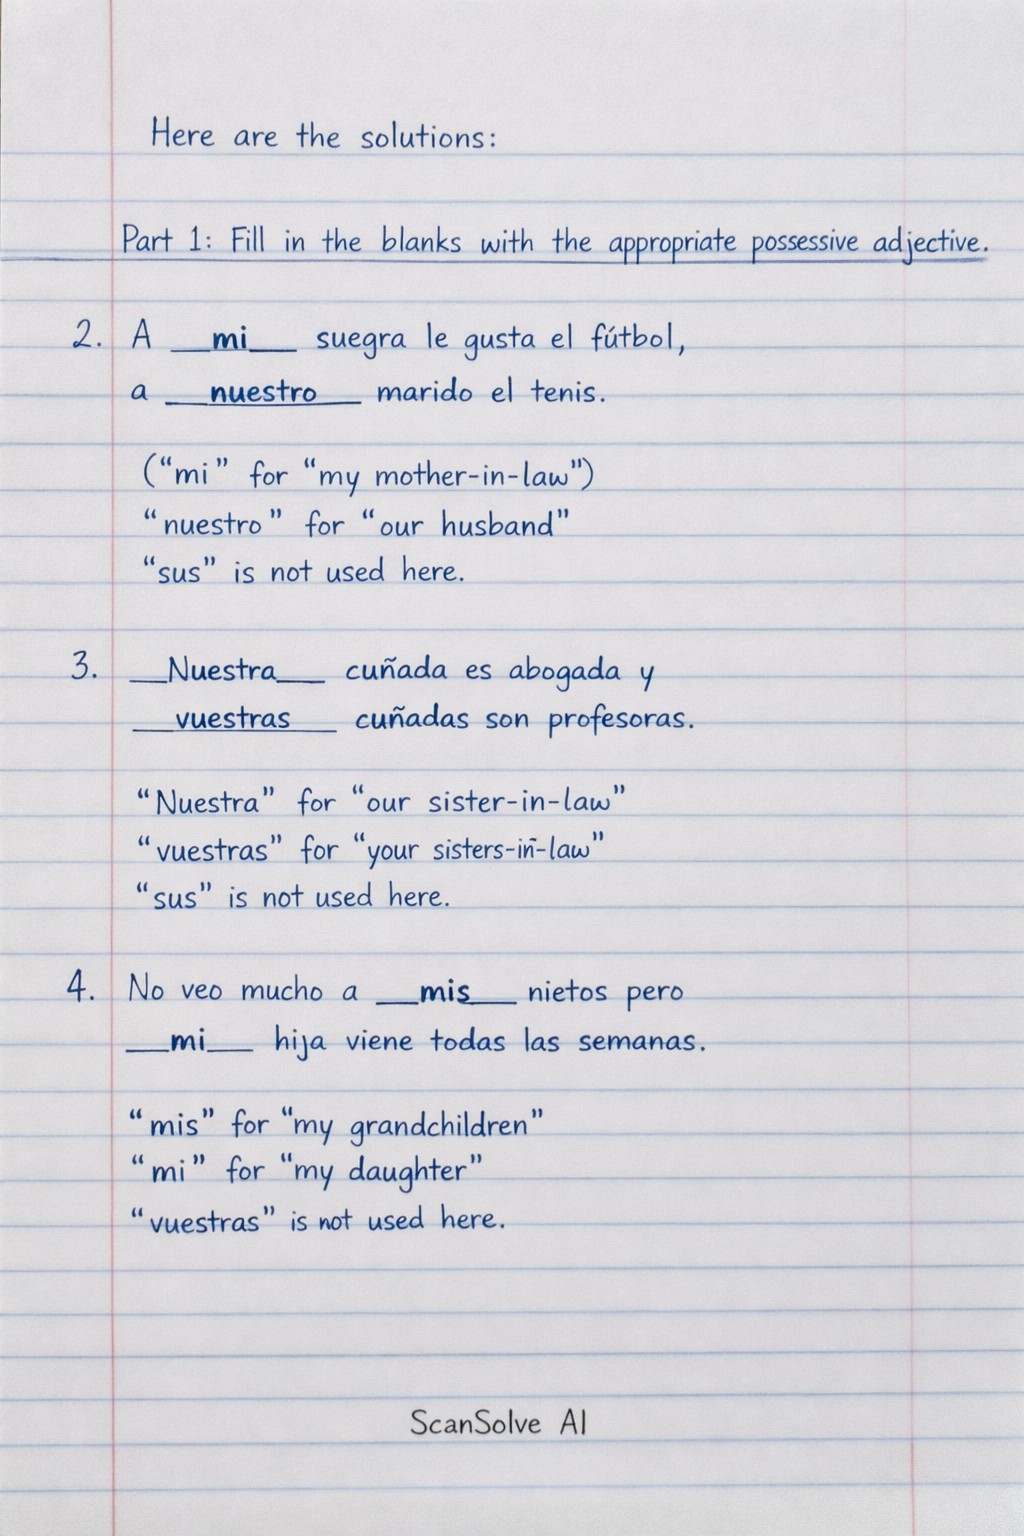 Here are the solutions:
Part 1: Fill in the blanks with the appropriate possessive adjective.
2. A __mi__ suegra le gusta el fútbol,
a __nuestro__ marido el tenis.
("mi" for "my mother-in-law")
"nuestro" for "our husband"
"sus" is not used here.
3. __Nuestra__ cuñada es abogada y
__vuestras__ cuñadas son profesoras.
"Nuestra" for "our sister-in-law"
"vuestras" for "your sisters-in-law"
"sus" is not used here.
4. No veo mucho a __mis__ nietos pero
__mi__ hija viene todas las semanas.
"mis" for "my grandchildren"
"mi" for "my daughter"
"vuestras" is not used here.
ScanSolve AI